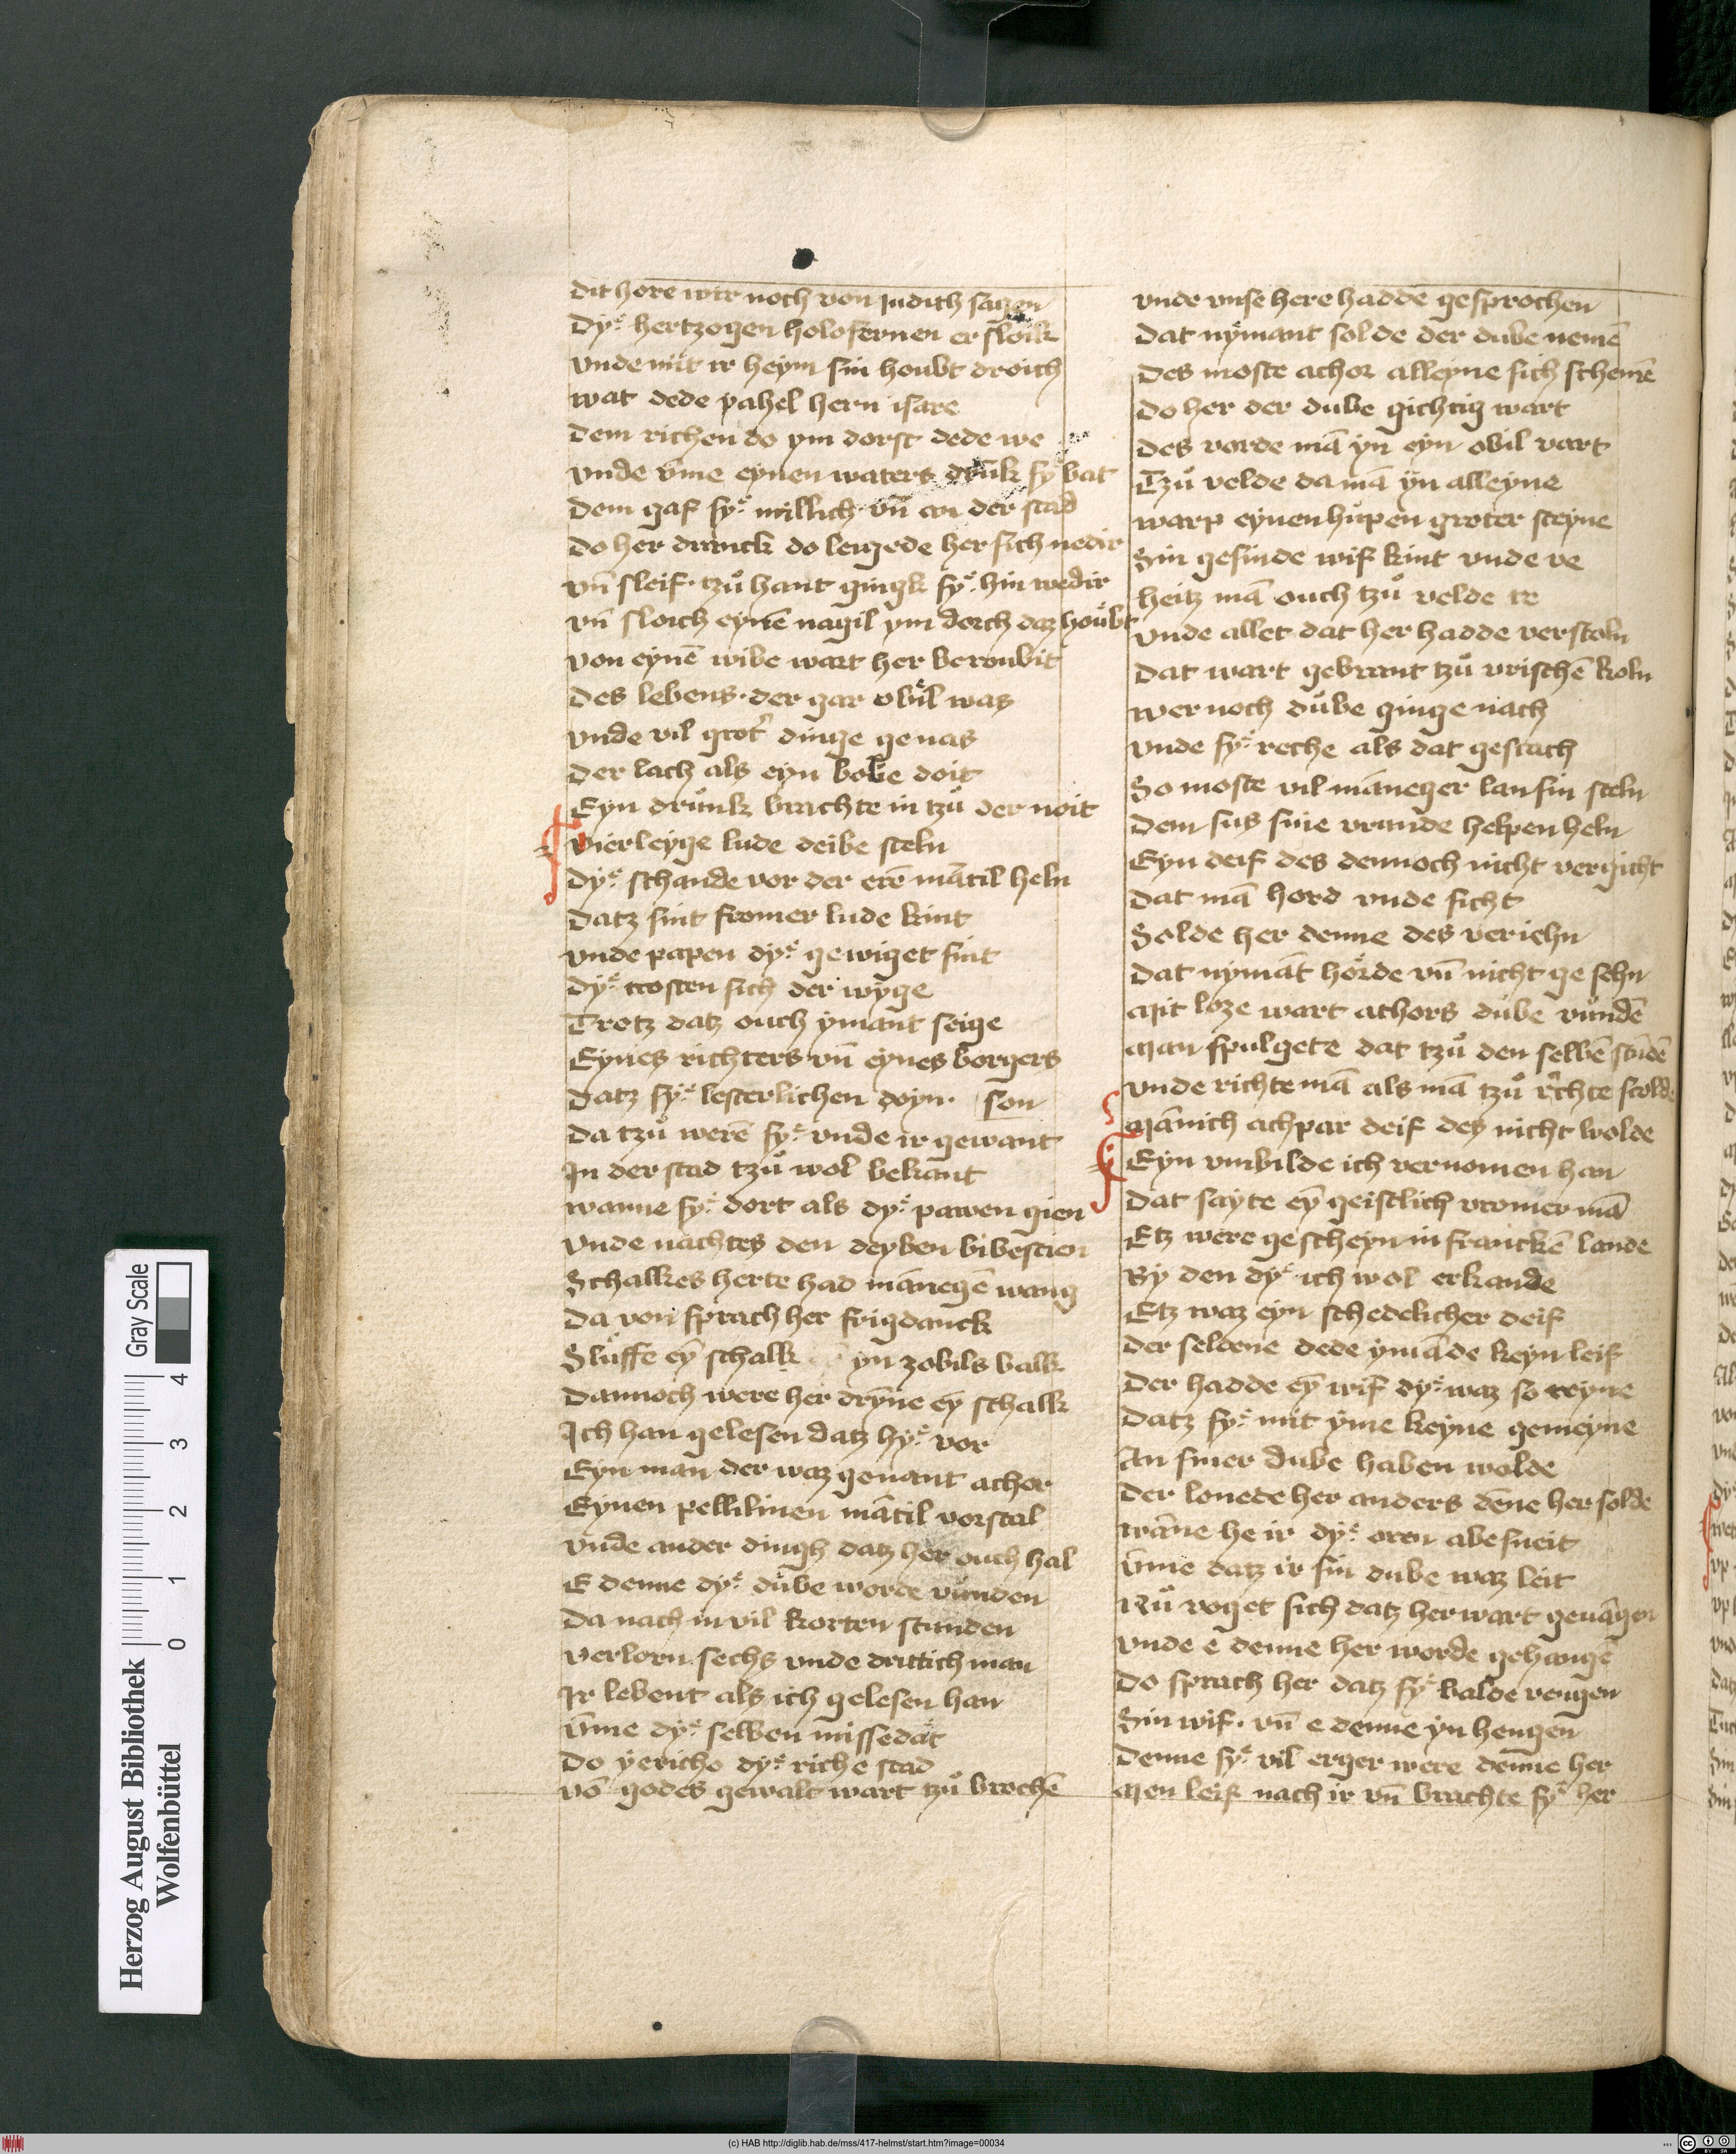 dit hore wir noch von judith sagen
Dyͤ hertzogen holofernen er sloik
Vnde mit ir heym sin houbt droich
wat dede yahel hern isare
Dem richen do ym dorst dede we
Vnde vm̄e eynen waters drunk syͤ bat
Dem gaf syͤ millich vn̄ in der stad
Do her dranck do leigede her sich nedir
vn̄ sleif · tzuͦ hant gingk syͤ hin wedir
vn̄ sloich eynē nagil ym dorch daz houbt
von eynē wibe wart her beroubit
Des lebens · der gar obil was
Vnde vil grot' dinge genas
Der lach als eyn bobe doit
Eyn drunk brachte in tzuͦ der noit
vierleyge lude deibe steln
dyͤ schande vor der erē mātil heln
Datz sint fromer lude kint
Vnde papen dyͤ gewiget sint
dyͤ trosten sich der wyge
Trotz datz ouch ymant seige
Eynes richters vn̄ eynes borgers
Datz syͤ lesterlichen doyn · son
Da tzuͦ werē syͤ vnde ir gewant
In der stad tzuͦ wol bekant
wanne syͤ dort als dyͤ pawen gien
Vnde nachtes den deyben bibestien
Schalkes herte had mānegē wang
Da von sprach her frigdanck
Sluffe ey̅ schalk yn zobils balk
Dannoch were her dryne ey̅ schalk
Ich han gelesen datz hyͤ vor
Eyn man der waz genant achor
Eynen pellilinen mātil vorstal
Vnde ander dingh datz her ouch hal
E denne dyͤ duͦbe worde vuͦnden
Da nach in vil korten stunden
Verlorn sechs vnde drittich man
Ir lebent als ich gelesen han
vm̄e dyͤ selben missedat
Do yericho dyͤ riche stad
vō godes gewalt wart tzuͦ brochē
vnde vnse here hadde gesprochen
Dat nymant solde der dube nemē
Des moste achor alleyne sich schemē
Do her der dube gichtig wart
Des vorde mā yn eyn obil vart
Tzuͦ velde da mā yn alleyne
warp eynen hupen groter steyne
Sin gesinde wif kint vnde ve
heitz mā ouch tzuͦ velde te
Vnde allet dat her hadde verstoln
Dat wart gebrant tzuͦ vrischē koln
wer noch duͦbe ginge nach
Vnde syͤ reche als dat geschach
So moste vil māneger lan sin steln
Dem sus sine vrunde helpen heln
Eyn deif des dennoch nicht vergicht
Dat mā hord vnde sicht
Solde her denne des veriehn
Dat nymāt horde vn̄ nicht ge sehn
Mit loze wart athors dube vuͦndē
Man spulgete dat tzuͦ den selbē stūdē
Vnde richte mā als mā tzuͦ rechte scolde
Mānich achpar deif des nicht wolde
Eyn vnbilde ich vernomen han
Dat sayte ey̅ geistlich vromer mā
Etz were gescheyn in franckē lande
By den dyͤ ich wol erkande
Etz waz eyn schedelicher deif
Der seldene dede ymāde keyn leif
Der hadde ey̅ wif dyͤ waz so reyne
Datz syͤ mit yme keyne gemeyne
An siner dube haben wolde
Der lonede her anders dēne her solde
wāne he ir dyͤ oren abe sneit
vm̄e datz ir sin dube waz leit
Nuͦ voget sich datz her wart geuāgen
Vnde e denne her worde gehangē
Do sprach her datz syͤ balde vengen
Sin wif · vn̄ e denne yn hengen
Denne syͤ vil erger were denne her
Men leif nach ir vn̄ brachte syͤ her
Herzog August Bibliothek
Wolfenbüttel
0 1 2 3 4
Gray Scale
(c) HAB http://diglib.hab.de/mss/417-helmst/start.htm?image=00034